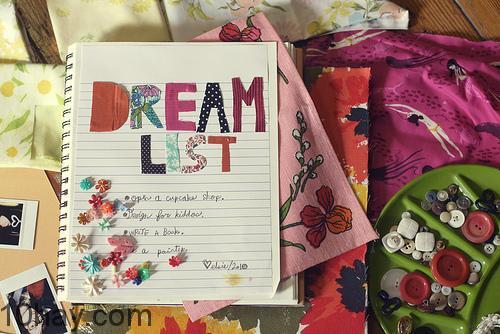 DREAM
LIST
open a cupcake shop.
Design for kiddos.
WRITE A BOOK.
a painter
10hay.com